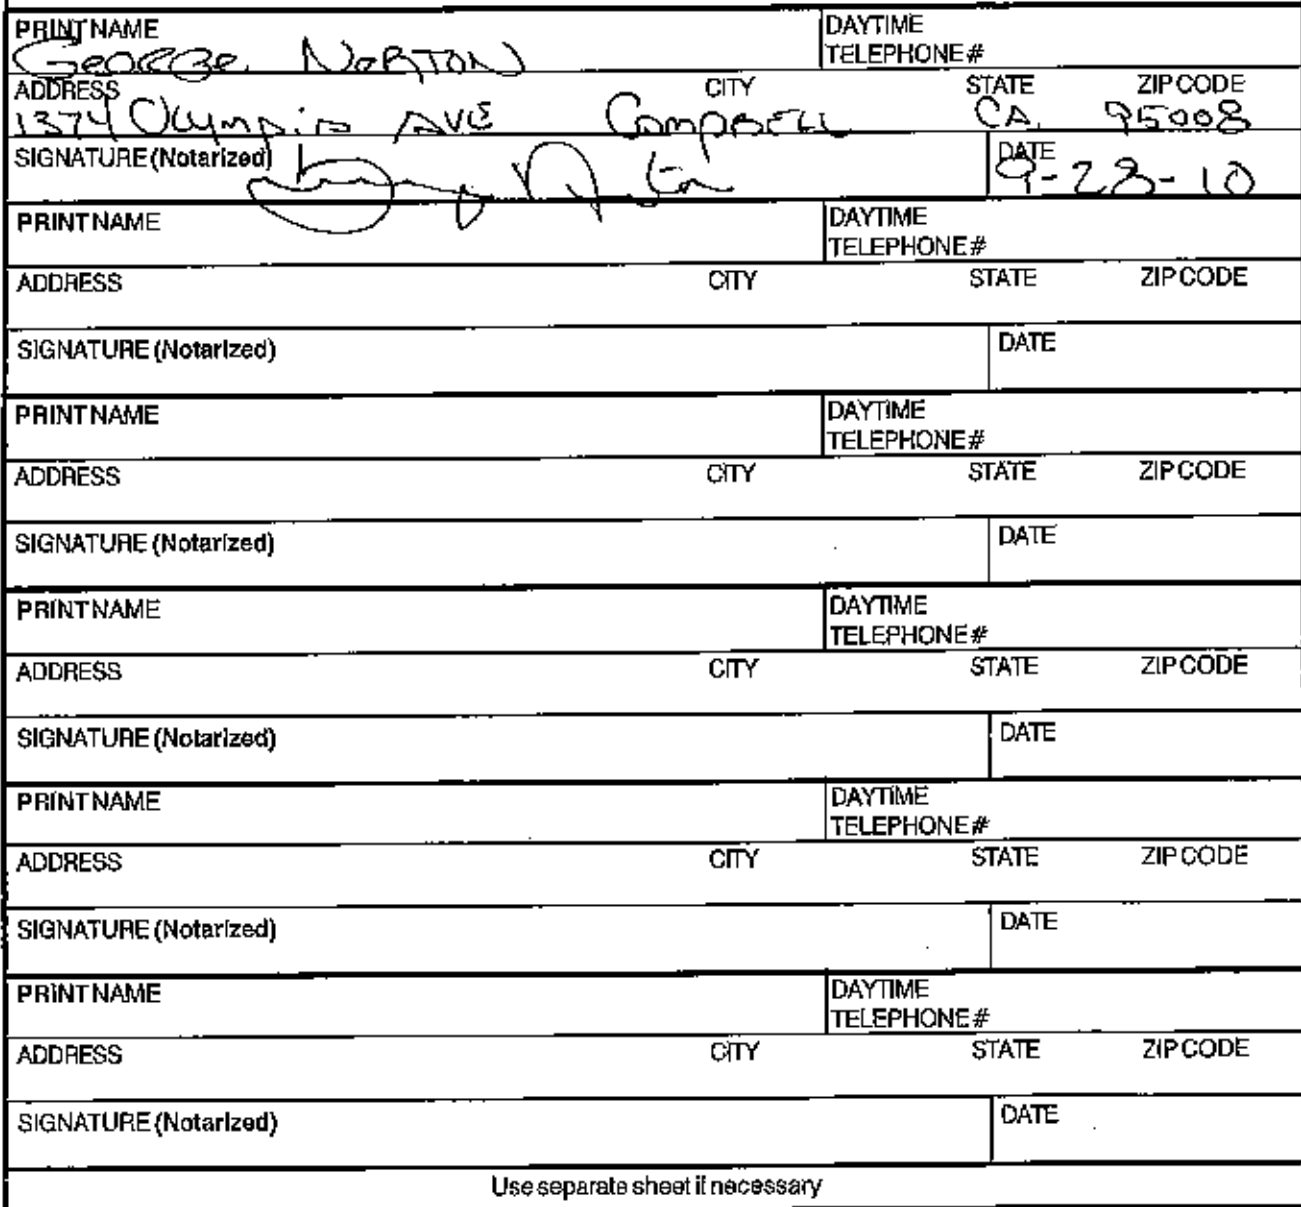 PRINT NAME DAYTIME
TELEPHONE #
George Norton
ADDRESS CITY STATE ZIP CODE
1374 Olympia AVE Campbell CA. 95008
SIGNATURE (Notarized) DATE
9-28-10
PRINT NAME DAYTIME
TELEPHONE #
ADDRESS CITY STATE ZIP CODE
SIGNATURE (Notarized) DATE
PRINT NAME DAYTIME
TELEPHONE #
ADDRESS CITY STATE ZIP CODE
SIGNATURE (Notarized) DATE
PRINT NAME DAYTIME
TELEPHONE #
ADDRESS CITY STATE ZIP CODE
SIGNATURE (Notarized) DATE
PRINT NAME DAYTIME
TELEPHONE #
ADDRESS CITY STATE ZIP CODE
SIGNATURE (Notarized) DATE
PRINT NAME DAYTIME
TELEPHONE #
ADDRESS CITY STATE ZIP CODE
SIGNATURE (Notarized) DATE
Use separate sheet if necessary